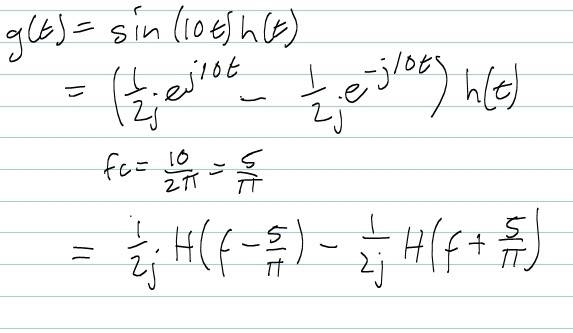 g(t) = sin(10t)h(t)
= (1/2j e^j10t − 1/2j e^−j10t) h(t)
fc = 10/2π = 5/π
= 1/2j H(f − 5/π) − 1/2j H(f + 5/π)